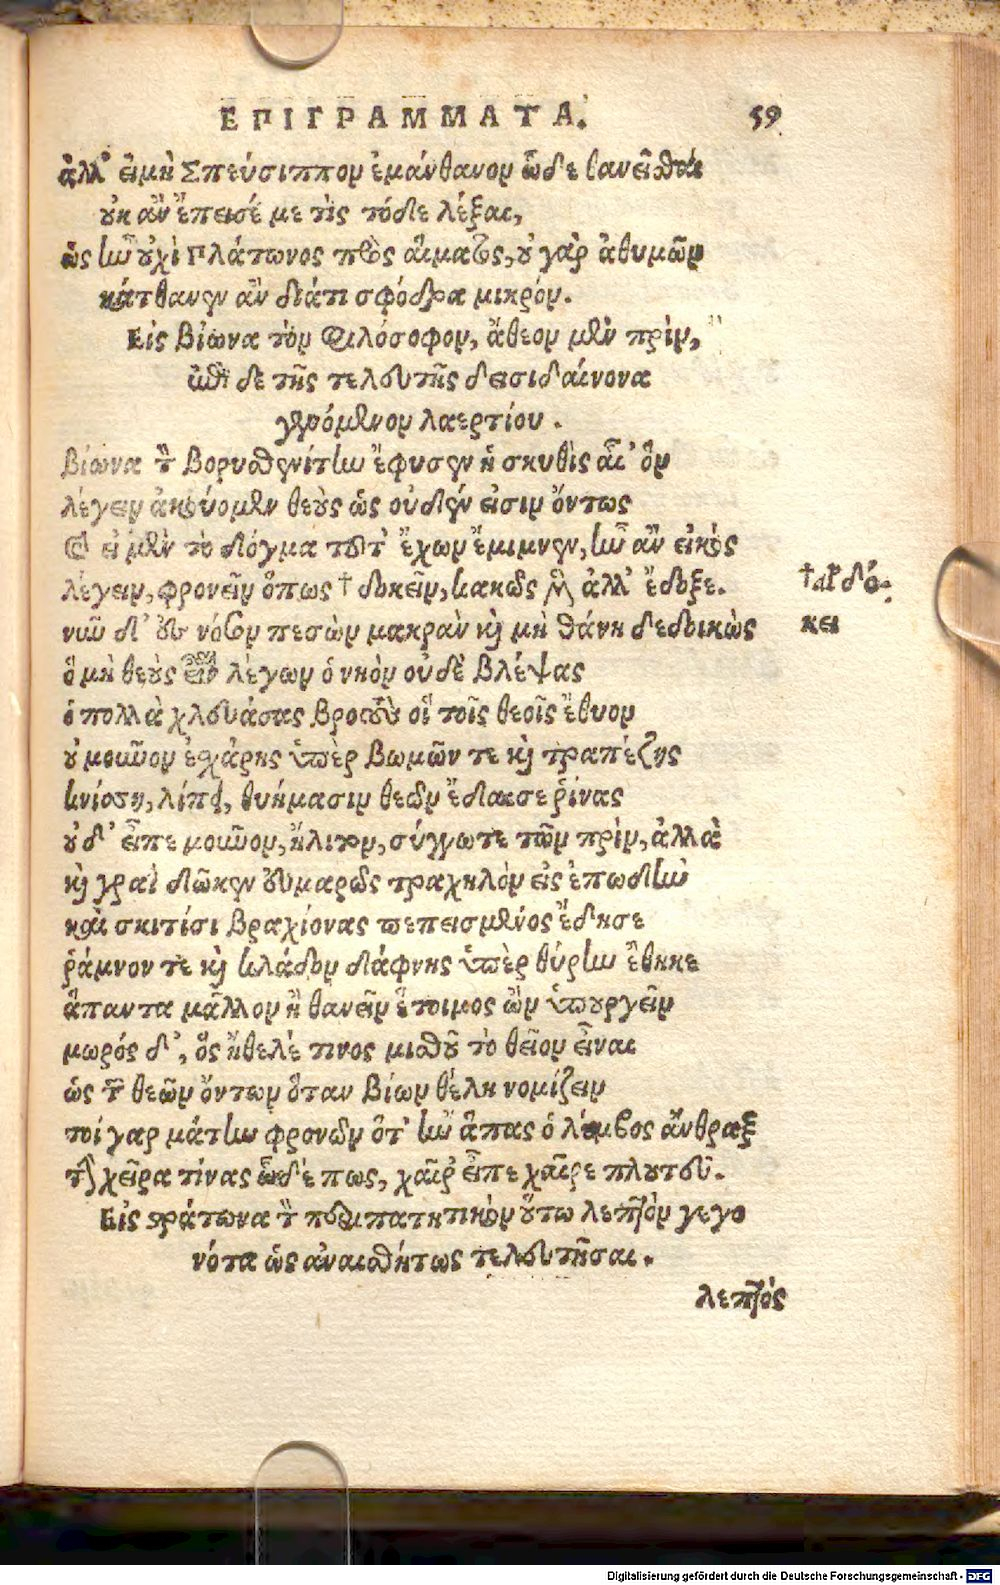 ΕΠΙΓΡΑΜΜΑΤΑ. 59
ἀλλ' εἰ μὴ Σπεύσιππον ἐμάνθανον ὧδε θανεῖσθαι
οὐκ ἂν ἔπεισέ με τὶς τόδε λέξαι,
ὡς ἦν οὐχὶ Πλάτωνος πρὸς αἵματος, οὐ γὰρ ἀθυμῶν
κάτθανεν ἂν διάτι σφόδρα μικρόν.
Εἰς Βίωνα τὸν φιλόσοφον, ἄθεον μὲν πρὶν,
ἐπὶ δὲ τῆς τελευτῆς δεισιδαίνονα
γενόμενον λαερτίου.
Βίωνα τὸν Βορυσθενίτην ἔφυσεν ἡ σκυθὶς αἶ' ὃν
λέγειν ἀκούομεν θεοὺς ὡς οὐδέν εἰσιν ὄντως
καὶ εἰ μὲν τὸ δόγμα τοῦτ' ἔχων ἔμιμνεν, ἦν ἂν εἰκὸς
λέγειν, φρονεῖν ὅπως † δοκεῖν, κακῶς μὲν ἀλλ' ἔδοξε.
† αἲ δό-
νῦν δ' εἰς νόσον πεσὼν μακρὰν καὶ μὴ θάνῃ δεδοικὼς
κει
ὃ μὴ θεοὺς εἶναι λέγων ὁ νηὸν οὐδὲ βλέψας
ὁ πολλὰ χλευάσας βροτοὺς οἳ τοῖς θεοῖς ἔθυον
οὐ μοῦνον ἐσχάρης ὑπὲρ βωμῶν τε καὶ τραπέζης
κνίσσῃ, λίπει, θυήμασιν θεῶν ἔδαισε ῥίνας
οὐδ' εἶπε μοῦνον, ἤλιτον, σύγγνωτε τῶν πρὶν, ἀλλὰ
καὶ γραῒ δῶκεν εὐμαρῶς τραχηλὸν εἰς ἐπωδὴν
καὶ σκιτίσι βραχίονας πεπεισμένος ἔδησε
ῥάμνον τε καὶ κλάδον δάφνης ὑπὲρ θύρην ἔθηκε
ἅπαντα μᾶλλον ἢ θανεῖν ἕτοιμος ὢν ὑπουργεῖν
μωρός δ', ὃς ἤθελέ τινος μισθοῦ τὸ θεῖον εἶναι
ὡς τῶν θεῶν ὄντων ὅταν Βίων θέλῃ νομίζειν
τοί γαρ μάτην φρονῶν ὅτ' ἦν ἅπας ὁ λέμβος ἄνθραξ
τὴν χεῖρα τίνας ὧδέ πως, χαῖρ' εἶπε χαῖρε πλουτοῦ.
Εἰς στράτωνα τὸν περιπατητικὸν οὕτω λεπτὸν γεγο
νότα ὡς ἀναισθήτως τελευτῆσαι.
λεπτὸς
Digitalisierung gefördert durch die Deutsche Forschungsgemeinschaft - DFG